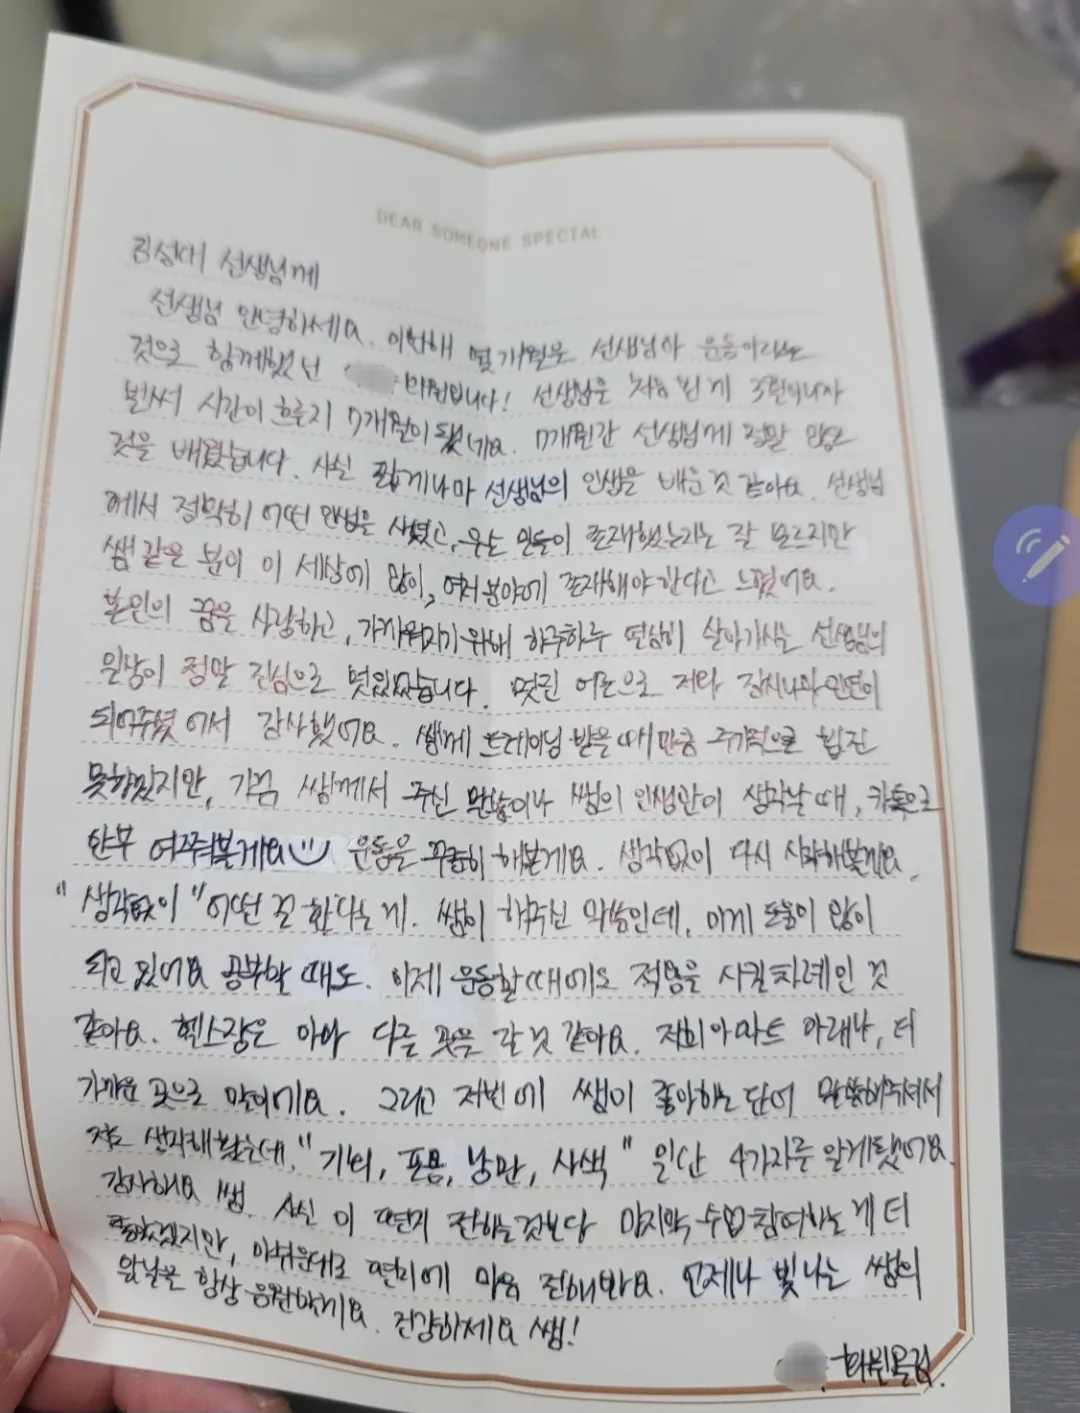 DEAR SOMEONE SPECIAL
김성대 선생님께
선생님 안녕하세요. 이번해 몇개월을 선생님과 운동이라는
것으로 함께했던 회원입니다! 선생님을 처음 뵌게 3월이니까
벌써 시간이 흐른지 7개월이 됐네요. 7개월간 선생님께 정말 많은
것을 배웠습니다. 사실 짧게나마 선생님의 인생을 배운것 같아요. 선생님
께서 정확히 어떤 인생을 사셨고, 무슨 일들이 존재했는지는 잘 모르지만
쌤 같은 분이 이 세상에 많이, 여러분야에 존재해야한다고 느꼈어요.
본인의 꿈을 사랑하고, 가까워지기 위해 하루하루 열심히 살아가시는 선생님의
일상이 정말 진심으로 멋있었습니다. 멋진 어른으로 저와 잠시나마 인연이
되어주셨어서 감사했어요. 쌤께 트레이닝 받을 때만큼 주기적으로 뵙진
못하겠지만, 가끔 쌤께서 주신 말씀이나 쌤의 인생관이 생각날 때, 카톡으로
안부 여쭤볼게요 운동을 꾸준히 해볼게요. 생각없이 다시 시작해볼게요.
"생각없이" 어떤 걸 한다는게. 쌤이 해주신 말씀인데, 이게 도움이 많이
되고 있어요 공부할 때도. 이제 운동할때에도 적용을 시킬차례인 것
같아요. 헬스장은 아마 다른 곳을 갈것 같아요. 저희 아파트 아래나, 더
가까운 곳으로 말이에요. 그리고 저번에 쌤이 좋아하는 단어 말씀해주셔서
저도 생각해봤는데, "기버, 포용, 낭만, 사색" 일단 4가지를 알게됐어요.
감사해요 쌤. 사실 이 편지 전하는것보다 마지막 수업 참여하는게 더
좋았겠지만, 아쉬운대로 편지에 마음 전해봐요. 언제나 빛나는 쌤의
앞날을 항상 응원할게요. 건강하세요 쌤!
회원올림.